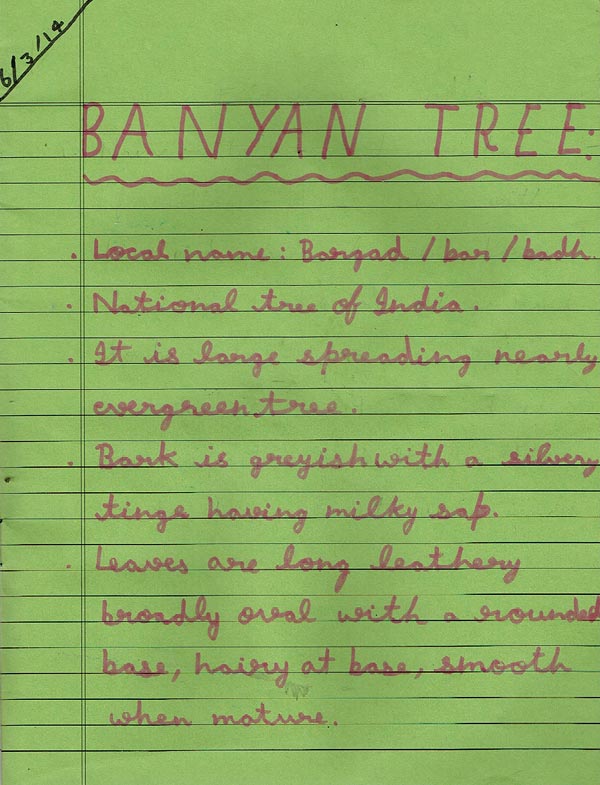 6/3/14
BANYAN TREE:
. Local name : Bargad / bar / badh.
. National tree of India.
. It is large spreading nearly
evergreen tree.
. Bark is greyish with a silvery
tinge having milky sap.
. Leaves are long leathery
broadly oval with a rounded
base, hairy at base, smooth
when mature.